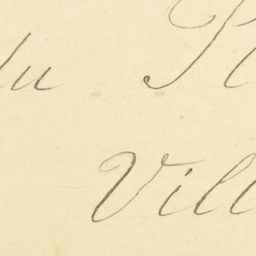 du
Vill